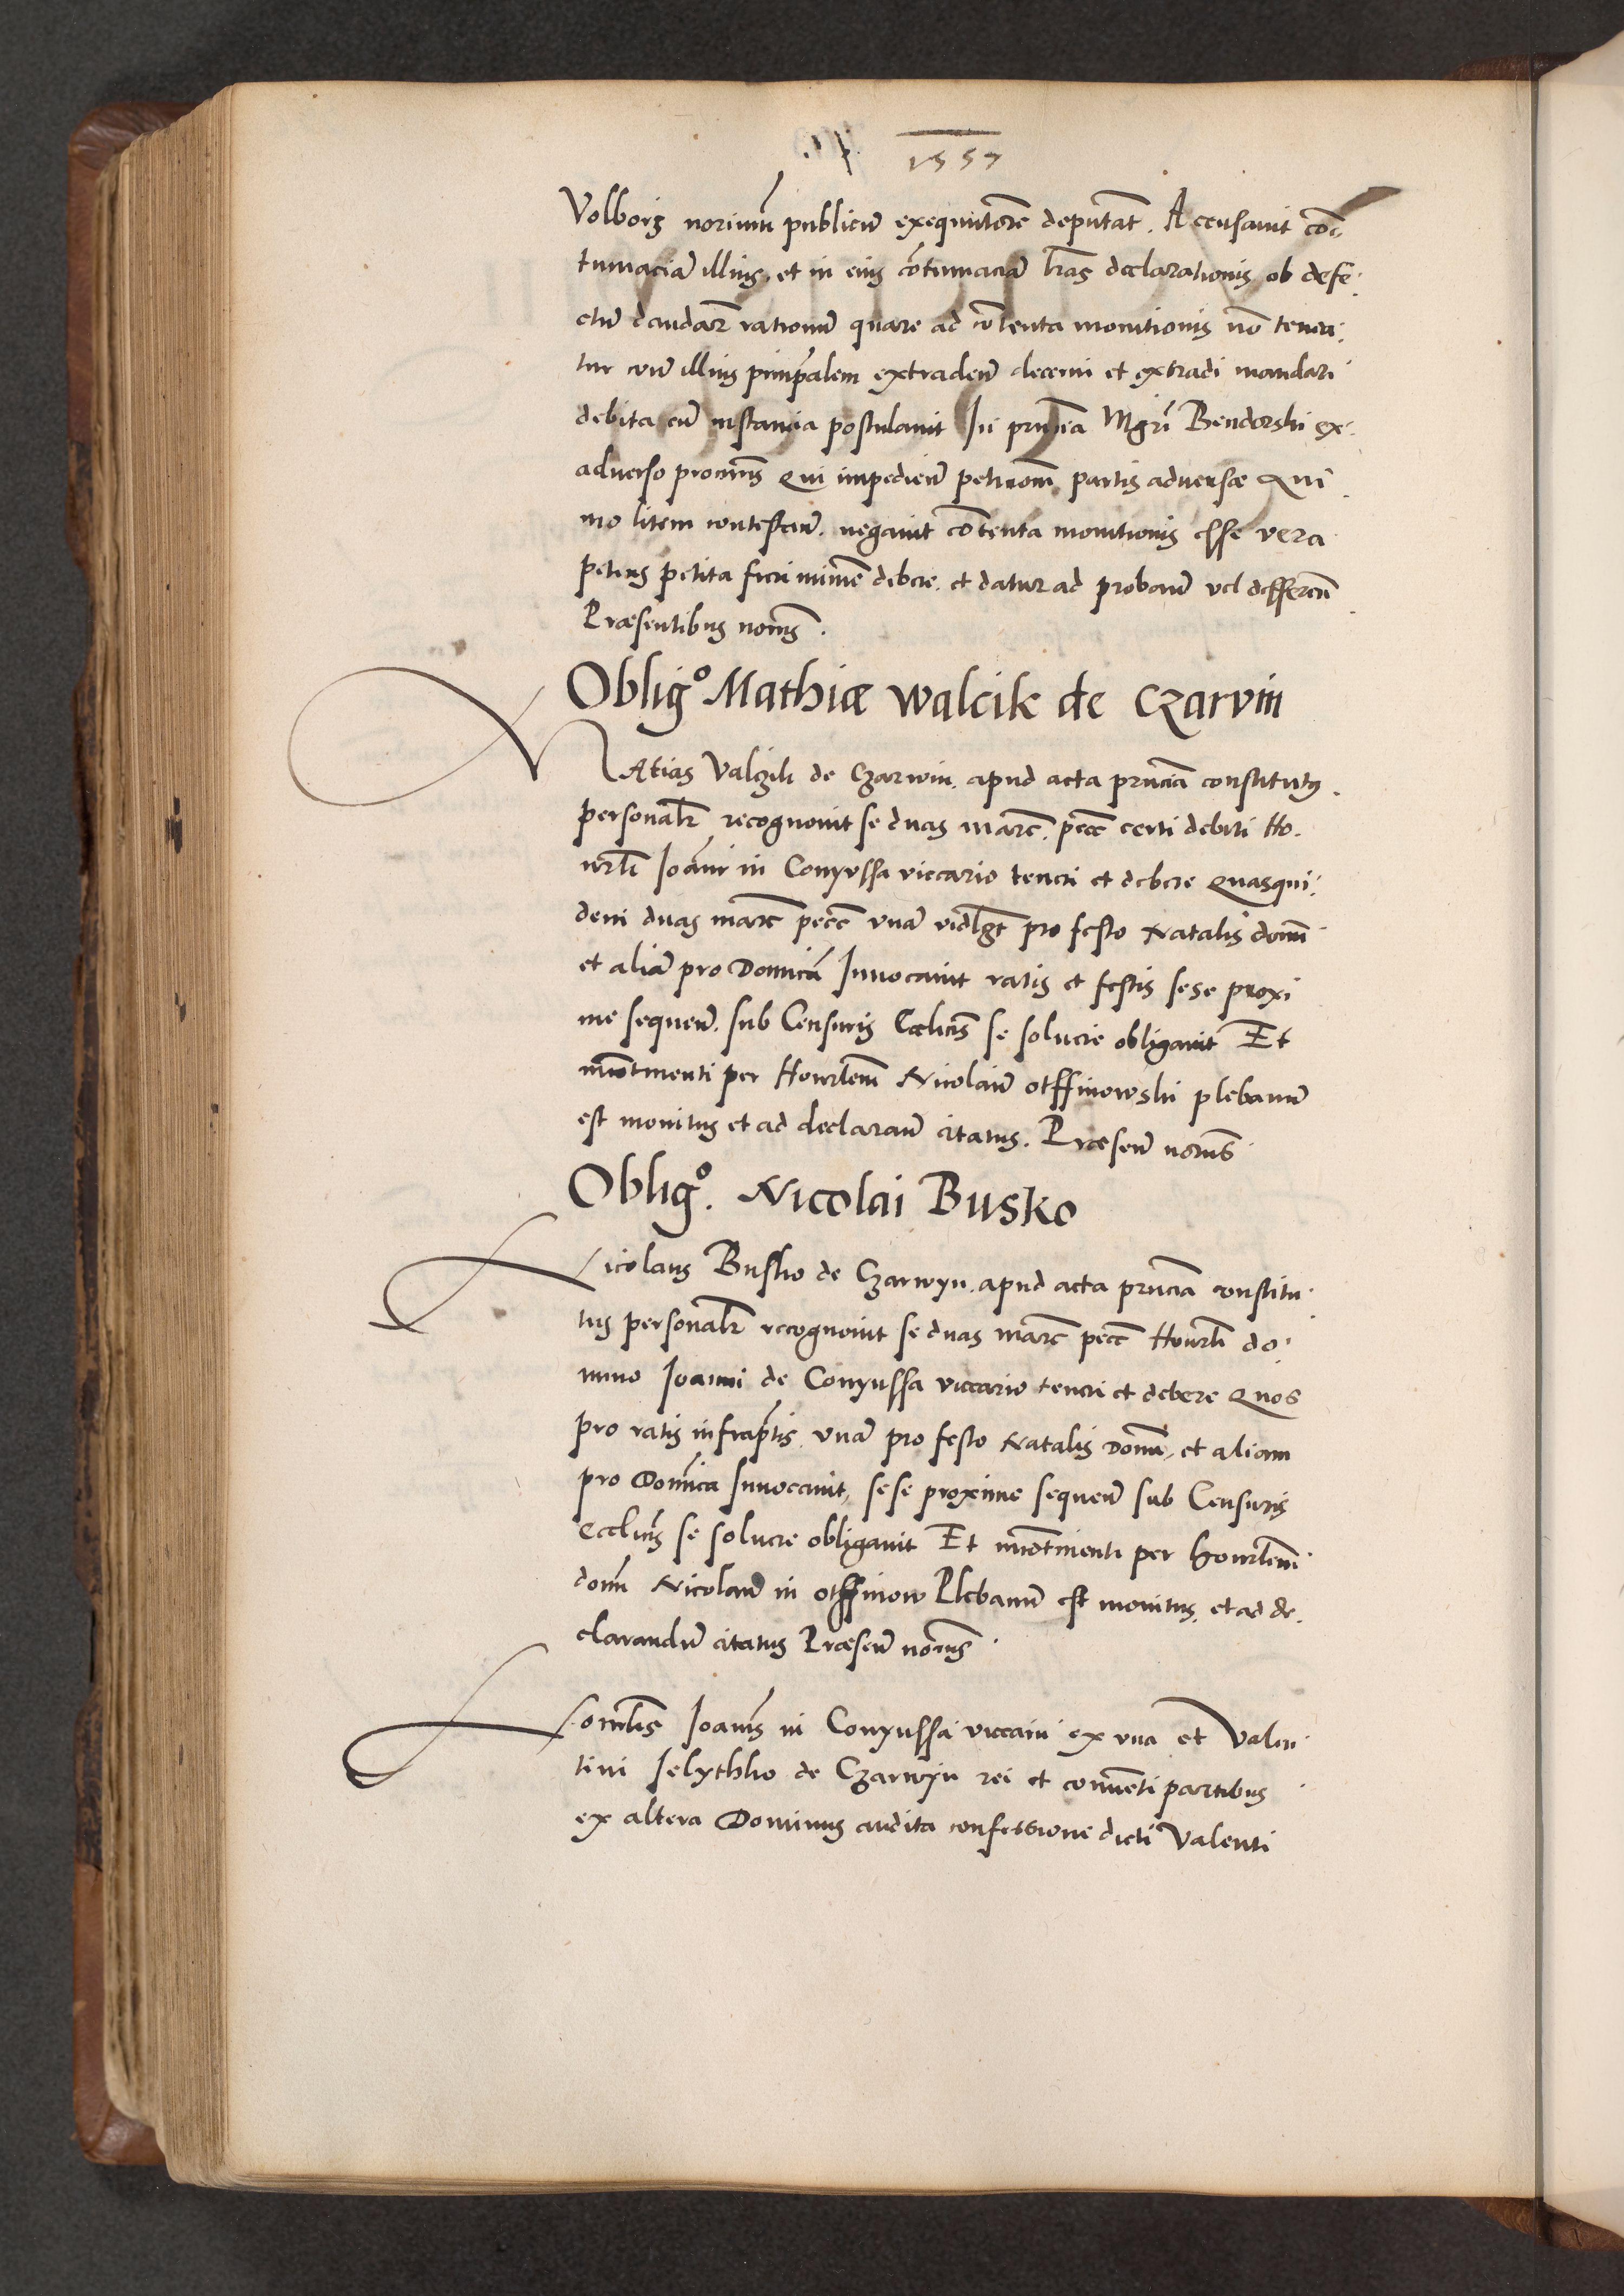 1557
Volboriẓ norium publicum exequutorem deputat. Accusavit con
tumaciã illius, et in eius cõtumaciã lras declarationis ob defe
ctum dandar rationum quare ad cõtenta monitionis nõ tenea
tur coram illius principalem extradeñ decerni et extradi mandari
debita cũ instancia postulavit In pñtia Mgri Bendorski ex
adverso procuris Qui impedieñ petitionem partis adversæ Qui
mo litem contestañ. negavit cõtenta monitionis esse vera
petens petita fieri minime debere. et datur ad probañ vel differeñ
Præsentibus noriis.
Obligo Mathiæ Walcik de Czarvin
Matias Valczik de Czarwin. apud acta prñcia constitutus
personalr recognovit se duas marc. pecc certi debiti Ho
norli Joãni in Conyussa viccario teneri et debere Quasqui
dem duas marc pecc unã vidlgt pro festo Natalis domi
et aliã pro Domica Invocavit ratis et festis sese proxi
me sequeñ. sub Censuris Ecclicis se solvere obligavit Et
incotinenti per Honorlem Nicolaũ otffinowski plebanum
est monitus et ad declarañ citatus. Præseñ noriis
Obligo. Nicolai Busko
Nicolaus Busko de Czarwyn. apud acta prñcia constitu
tus personalr recognovit se duas marc pecc Honorli do
mino Joanni de Conyussa viccario teneri et debere Quos
pro ratis infraptis unã pro festo Natalis Domi, et aliam
pro Domica Invocavit, sese proxime sequeñ sub Censuris
Ecclicis se solvere obligavit Et incotinenti per honorlem
dom Nicolaũ in otffinow Plebanum est monitus, et ad de
clarandũ citatus Præseñ noriis
Honorlis Joannis in Conyussa viccarii ex una et Valen
tini Jelythko de Czarwyn rei et conventi partibus
ex altera Dominus audita confessione dicti Valenti